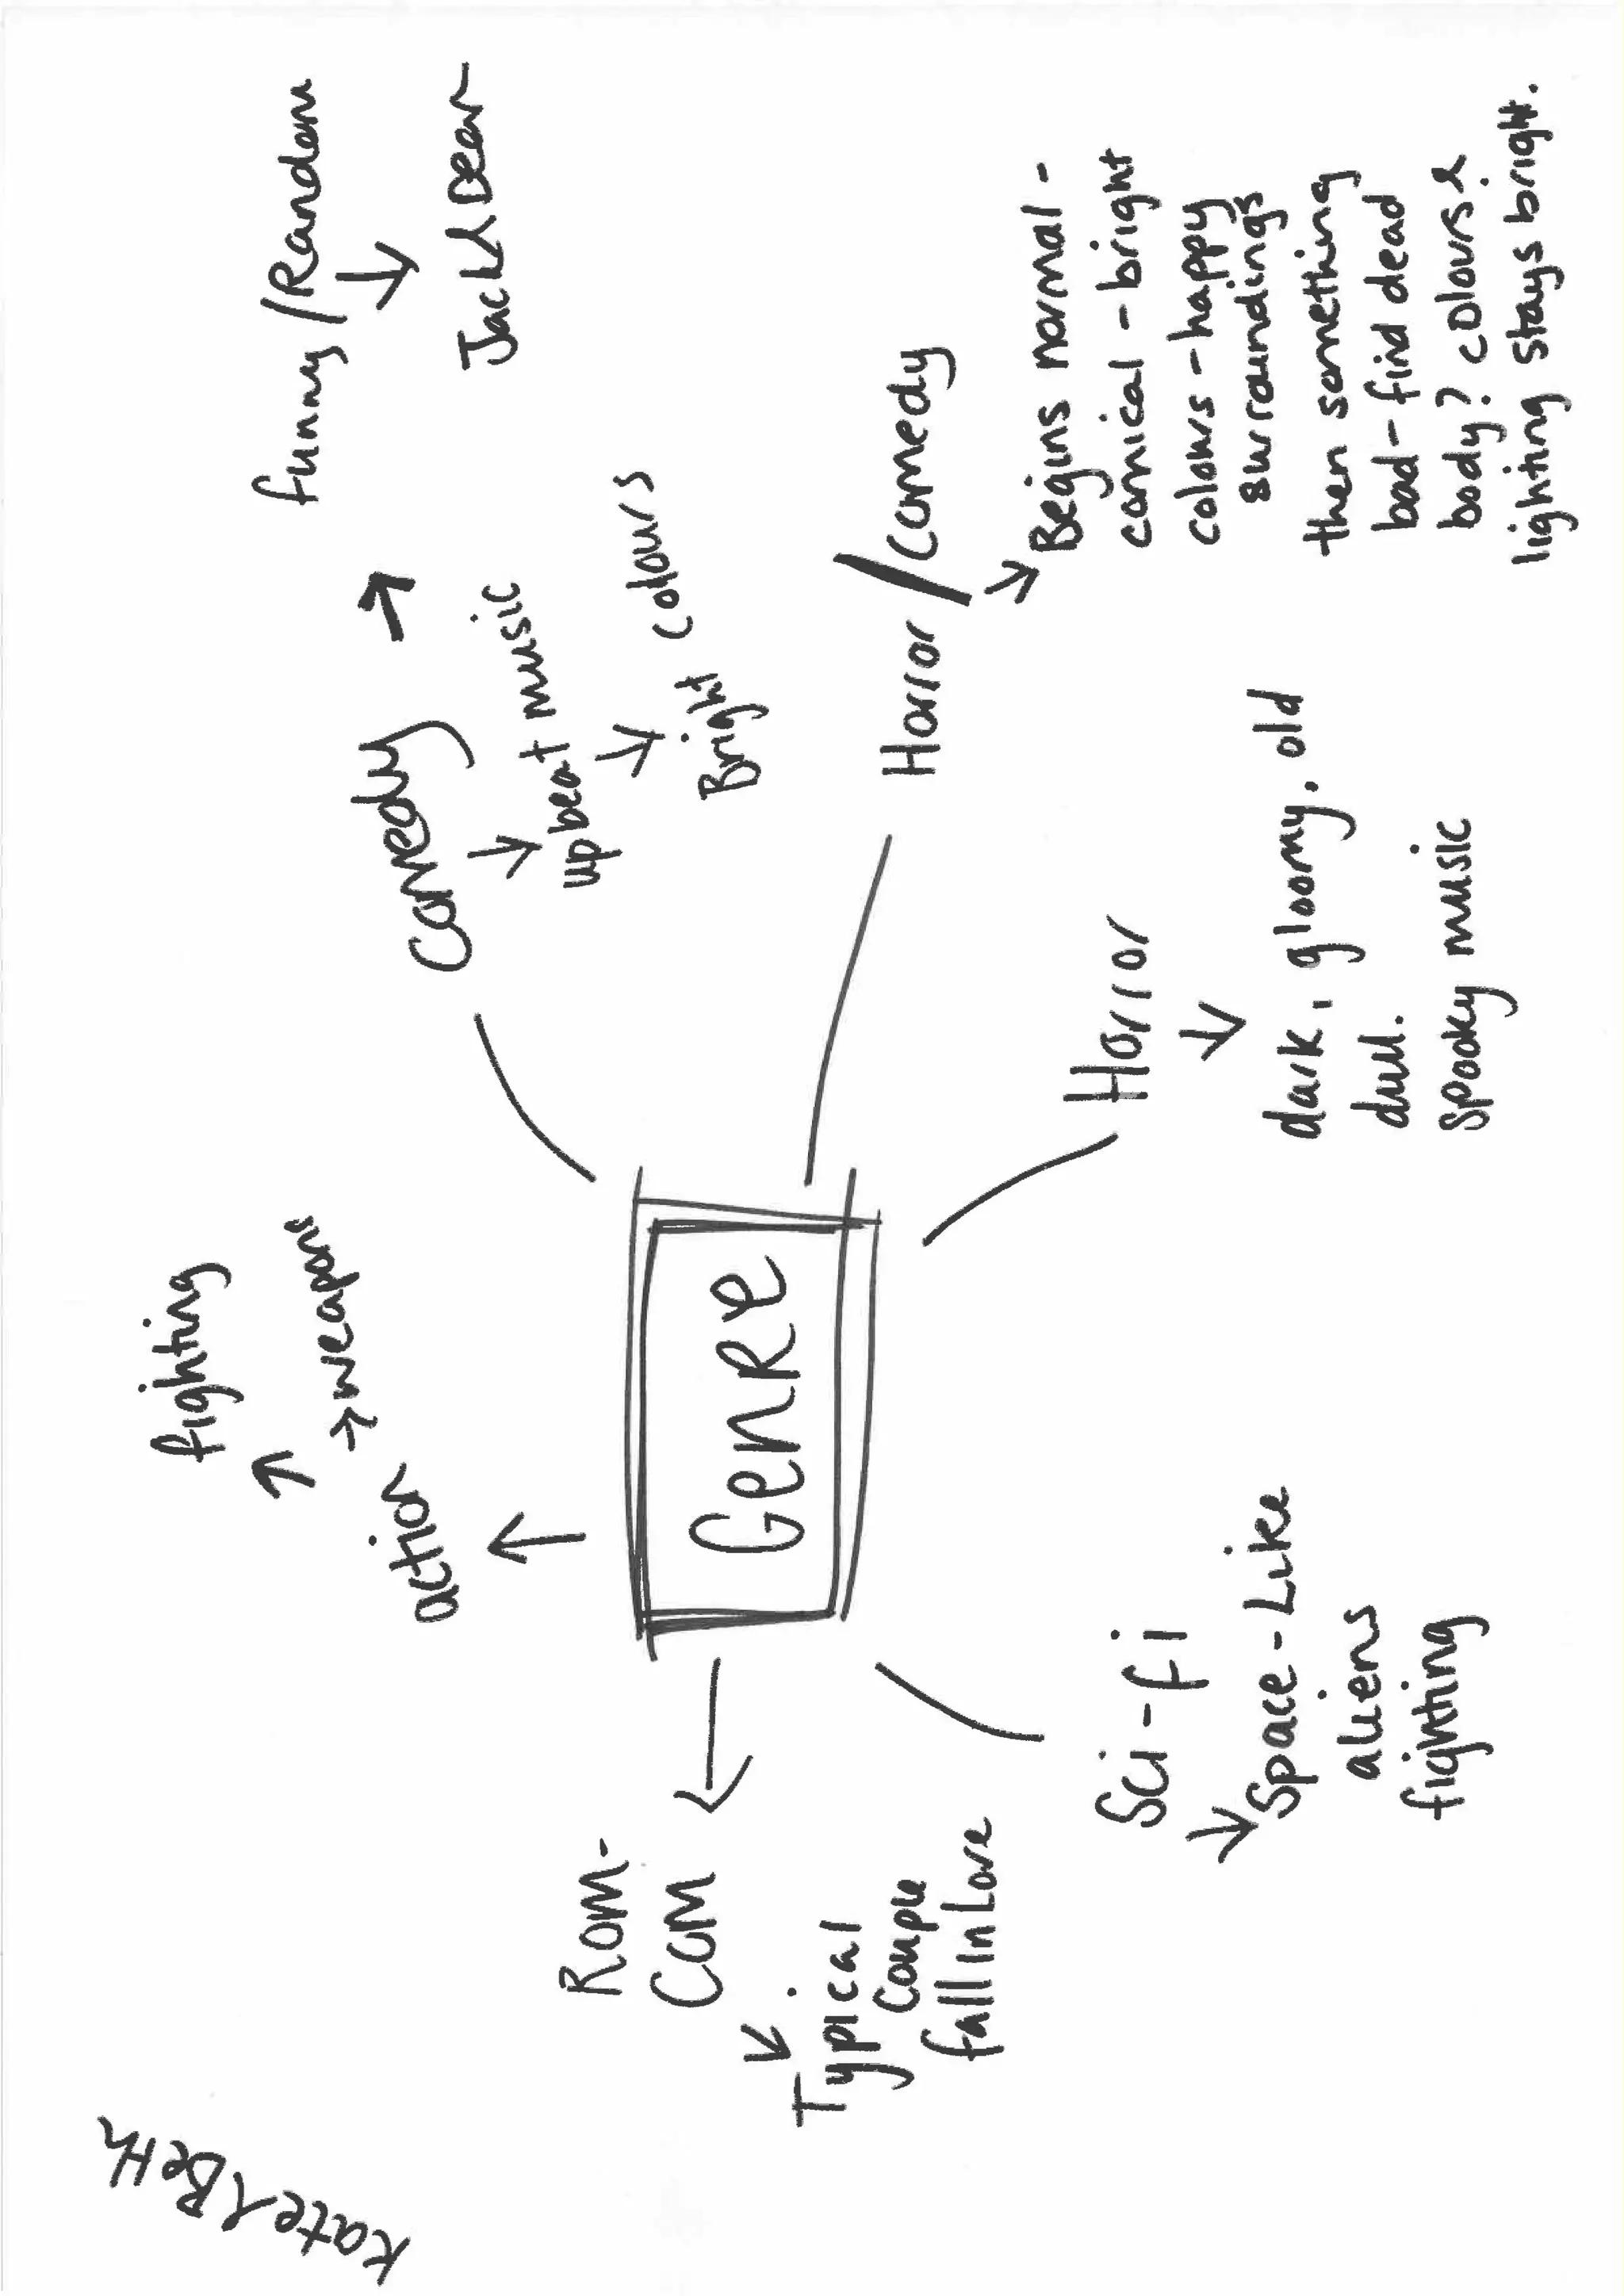 Kate & Beth
fighting
→ weapons
action
funny / Random
Jack & Dean
Comedy
upbeat music
Bright colours
Genre
Rom-
Com
Typical
couple
fall in Love
Horror / Comedy
Begins normal -
comical - bright
colours - happy
surroundings
then something
bad - find dead
body? colours &
lighting stays bright.
Horror
dark, gloomy. old
dull.
Spooky music
Sci-fi
Space-Like
aliens
fighting